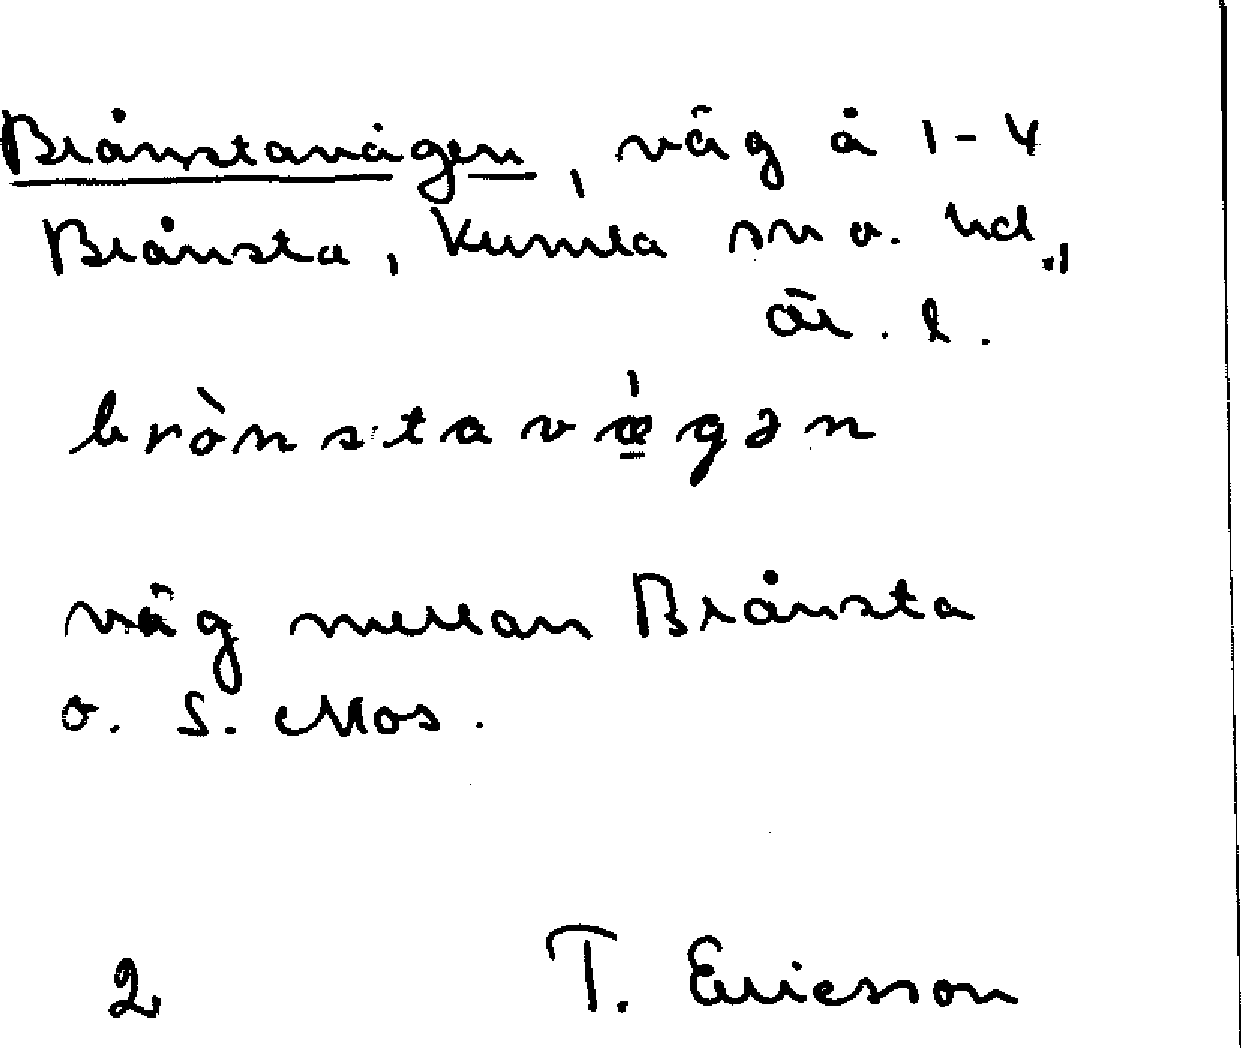 Brånstavägen, väg å 1-4
Brånsta, Kumla sn o. hd.,
Är. l.
brònstavǽgən
väg mellan Brånsta
o. S. Mos.
2 T. Ericsson